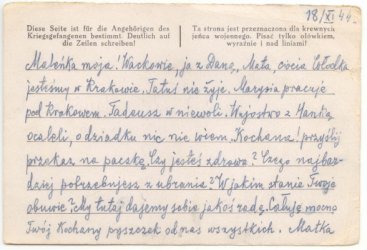 18/XI 44.
Diese Seite ist für die Angehörigen des
Kriegsgefangenen bestimmt. Deutlich auf
die Zeilen schreiben!
Ta strona jest przeznaczona dla krewnych
jeńca wojennego. Pisać tylko ołówkiem,
wyraźnie i nad liniami!
Maleńka moja! Wackowie, ja z Daną, Mała, ciocia
jesteśmy w Krakowie. Tatuś nie żyje. Marysia pracuje
pod Krakowem. Tadeusz w niewoli. Wujostwo z Hanką
ocaleli, o dziadku nic nie wiem. Kochana! przyślij
przekaz na paczkę. Czy jesteś zdrowa? Czego najbar-
dziej potrzebujesz z ubrania? W jakim stanie Twoje
obuwie? My tutaj dajemy sobie jakoś radę. Całuję mocno
Twój Kochany pyszczek od nas wszystkich. Matka